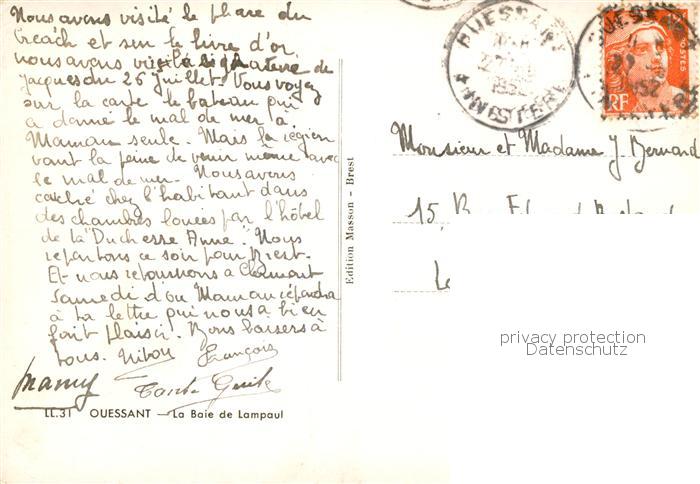 Nous avons visité le phare du
Créach et sur le livre d'or
nous avons vu la signature de
Jacques du 26 juillet. Vous voyez
sur la carte le bateau qui
a donné le mal de mer à
Maman seule. Mais la région
vaut la peine de venir même avec
le mal de mer. Nous avons
couché chez l'habitant dans
des chambres louées par l'hôtel
de la "Duchesse Anne". Nous
repartons ce soir pour Brest.
Et nous retournons à Clermont
samedi d'où Maman répondra
à ta lettre qui nous a bien
fait plaisir. Bons baisers à
tous. François
Mamy Tante
LL.31 OUESSANT — La Baie de Lampaul
Edition Masson - Brest
OUESSANT
FINISTERE
1952
OUESSANT
1952
POSTES
RF
Monsieur et Madame J Bernard
15,
Le
privacy protection
Datenschutz